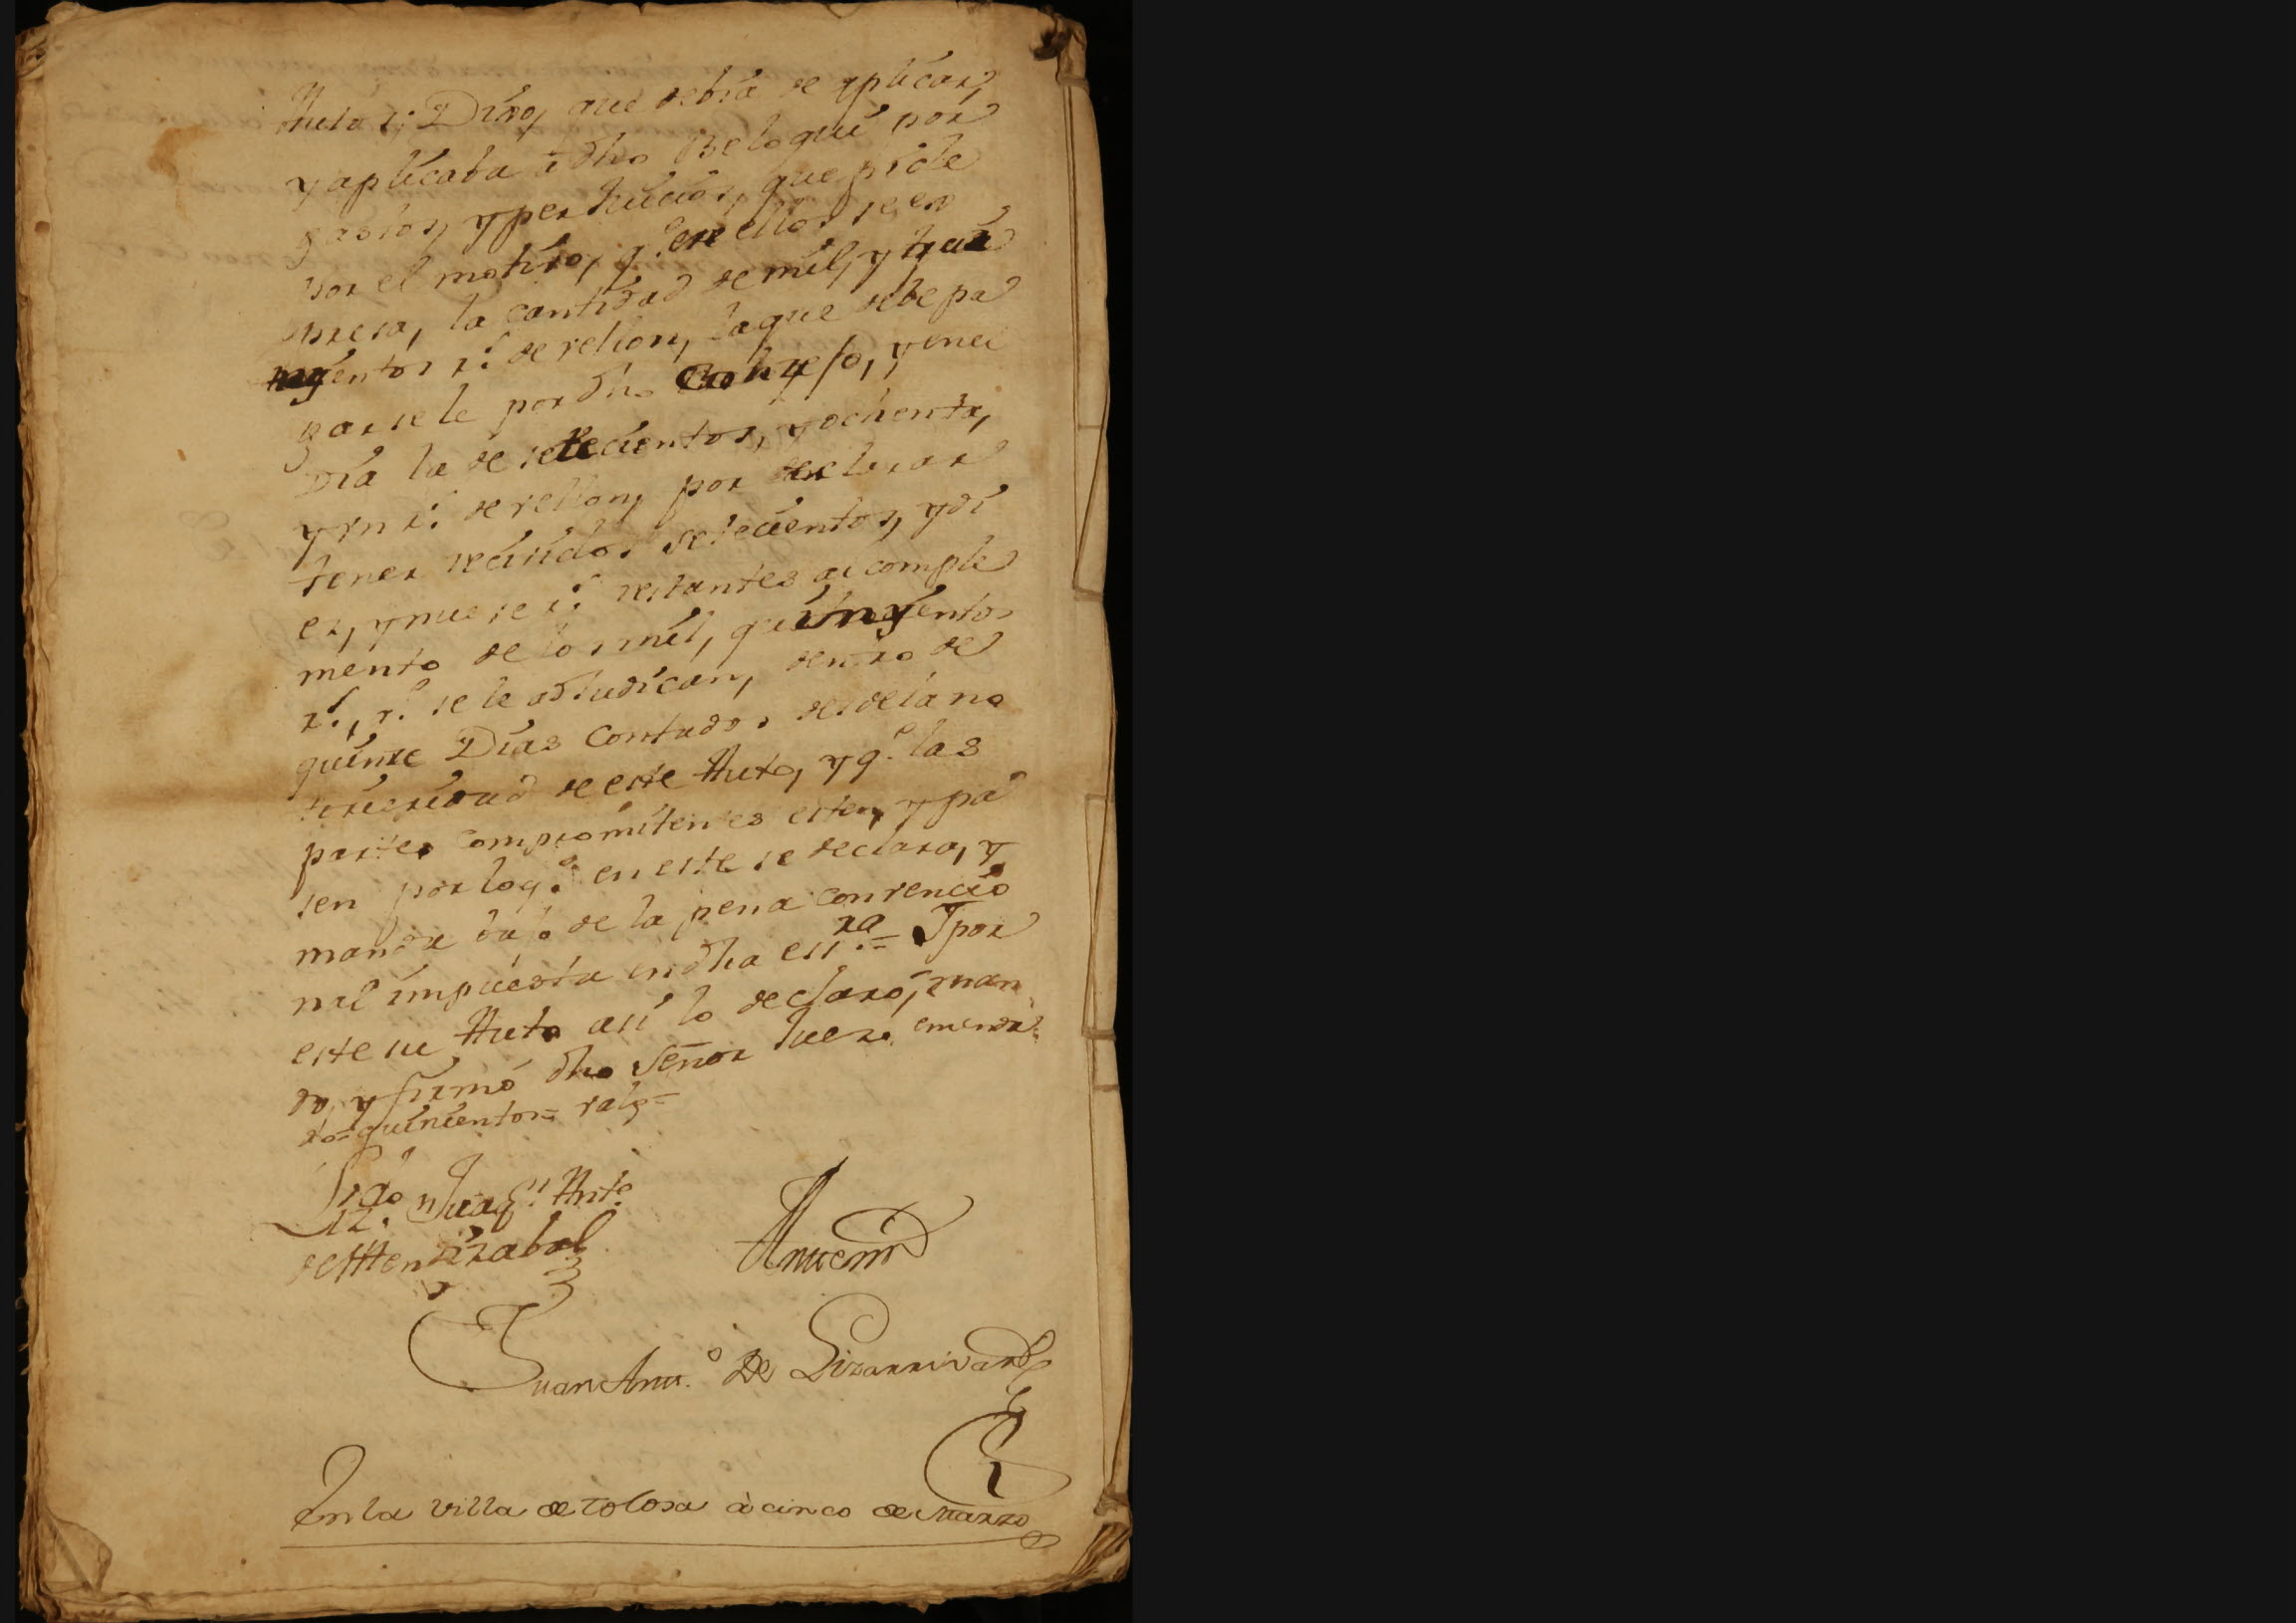 Autos: Dixo, que debia de aplicar,
y aplicaba â dho Beloqui por
gastos, y perjuicios, que pide
por el motivo, q.e en ellos se ex
presa, la cantidad de mil, y quin
ientos r.s de vellon, la que debe pa
garsele por dho , y en ei
Dia la de setecientos, y ochenta,
y vn r.s de vellon, por declarar
tener recividos setecientos, y di
ez, y nuebe r.s restantes al comple
mento de los mil, quinientos
r.s, q.e se le adjudican, dentro de
quinze Dias Contados desde la no
toriedad de este Auto, y q.e las
partes compromitentes esten, y pa
sen por lo q.e en este se declara, y
manda bajo de la pena convencio
nal impuesta en dha ess.ra = Y por
este su Auto asi lo declaró, man
dó, y firmó dho Señor Juez. emenda
do = quinientos = valg =
Liz.do D.n Juaq.n Ant.o
de Mendizabal
Antemi
Juan Antt.o De Lizarrivar
En la villa de tolosa à cinco de Marzo